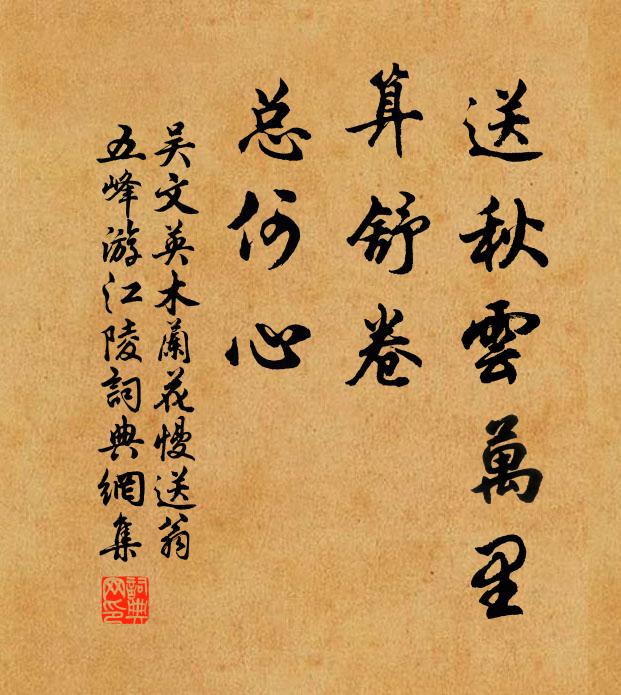 送秋雲萬里
算舒卷
总何心
吴文英木蘭花慢送翁
五峰游江陵詞典網集
詞典网印